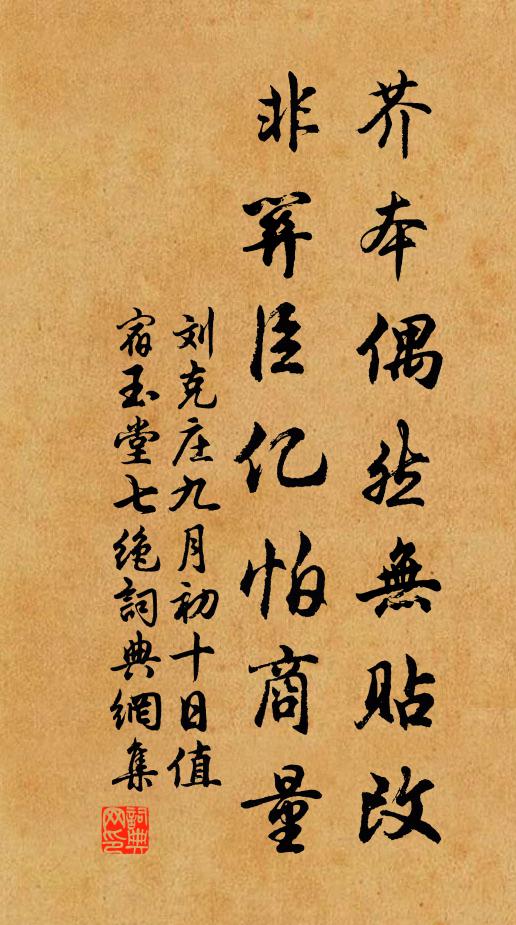 芥本偶然無貼改
非關臣亿怕商量
刘克庄九月初十日值
宿玉堂七绝詞典網集
詞典
网印